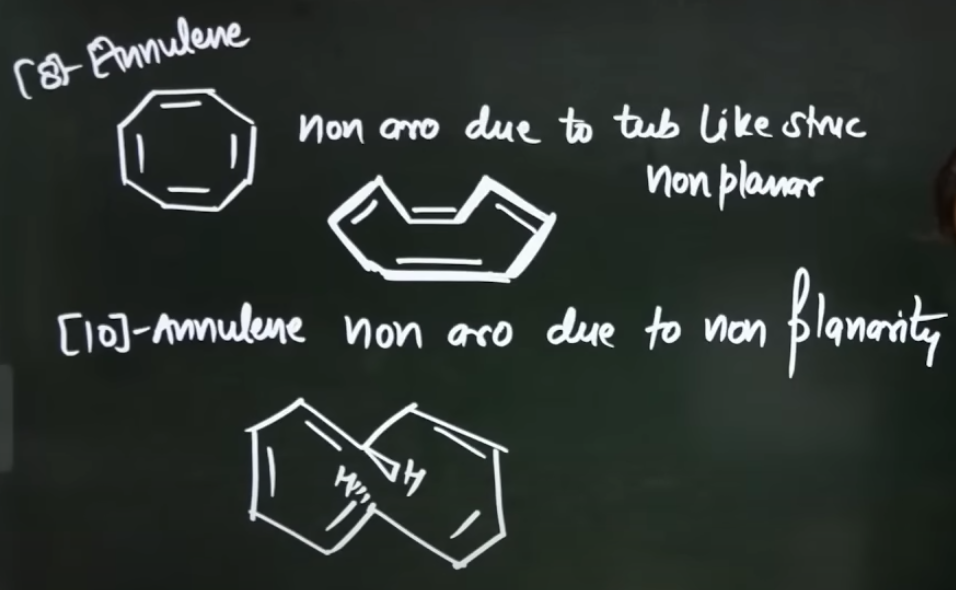 [8]-Annulene
non aro due to tub like struc
non planar
[10]-Annulene non aro due to non planarity
H H